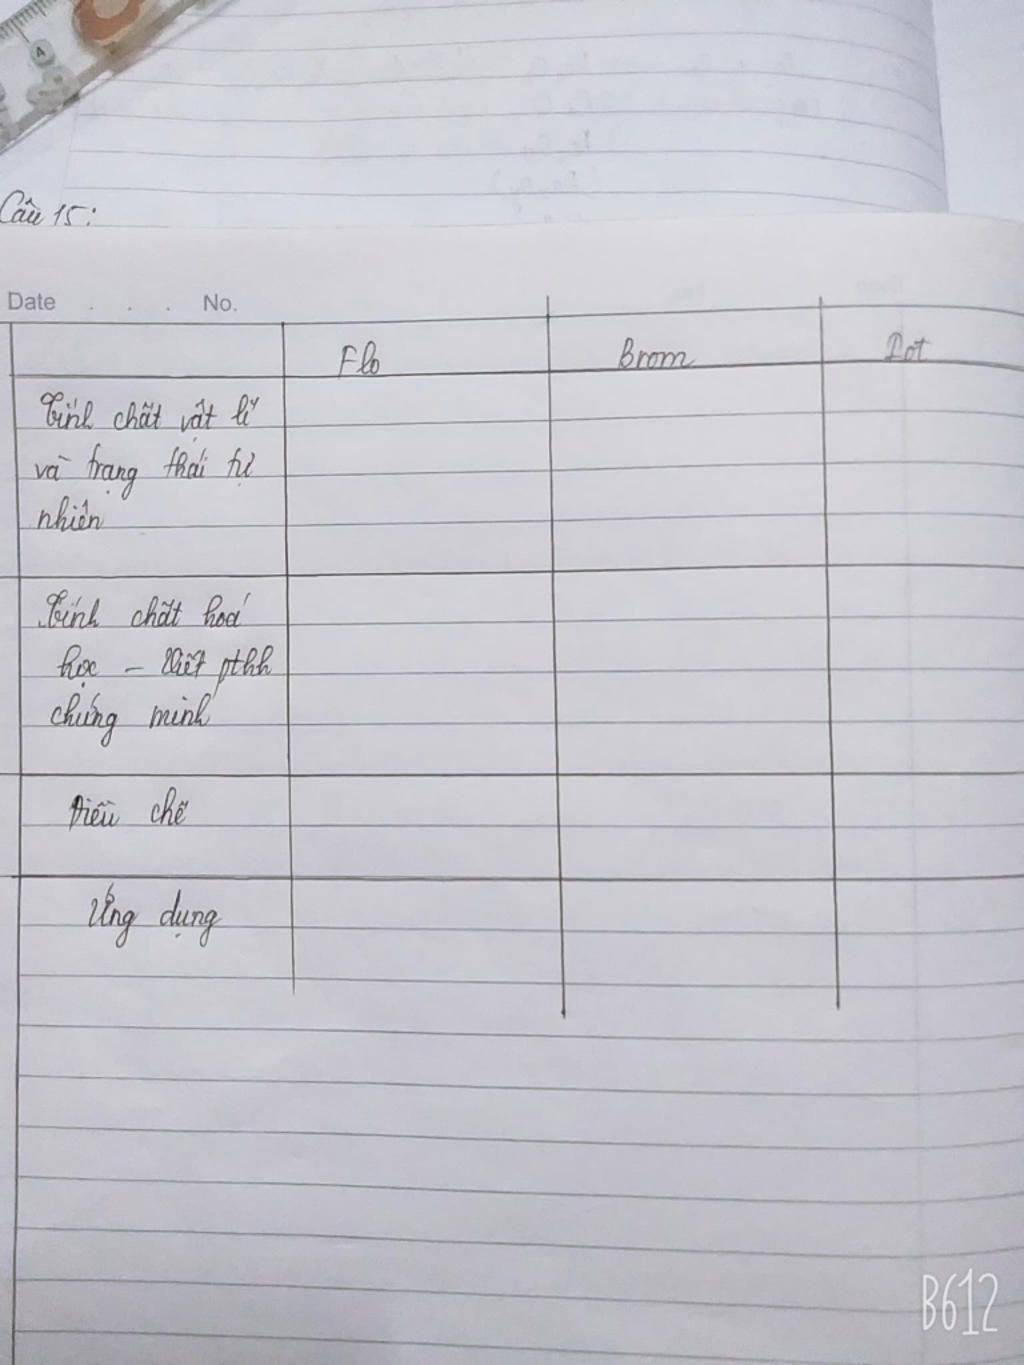 A
Câu 15:
Date . . . No.
Flo Brom Iot
Tính chất vật lí
và trạng thái tự
nhiên
Tính chất hoá
học – Viết pthh
chứng minh
Điều chế
Ứng dụng
B612